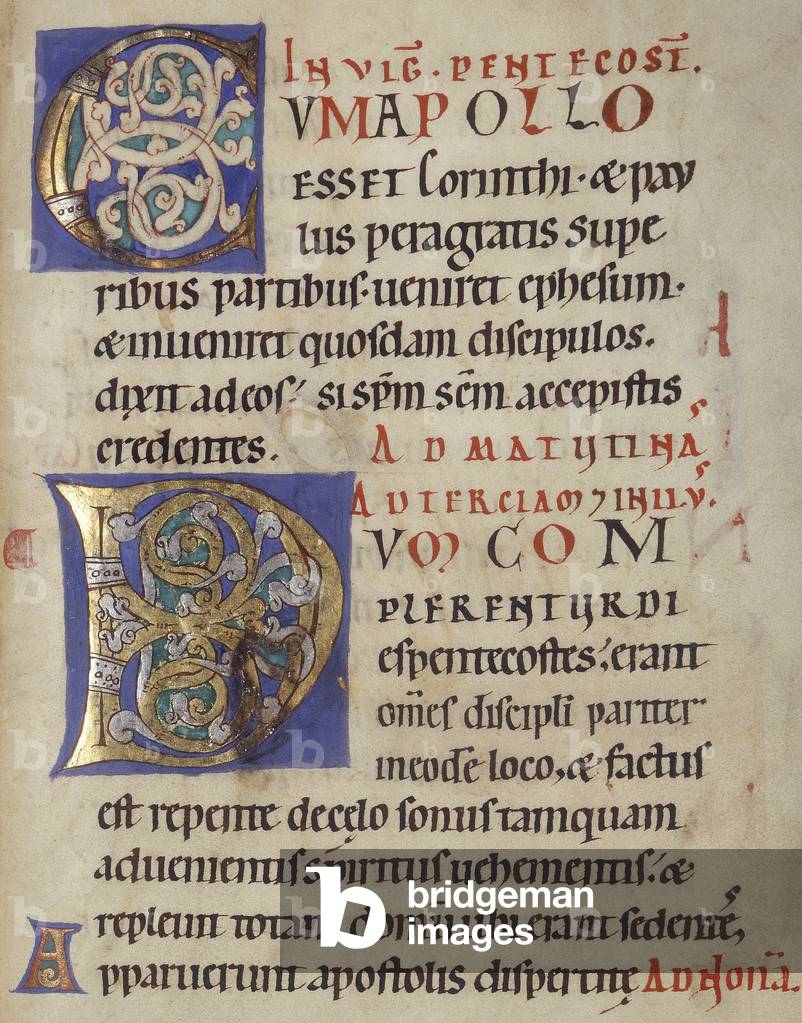 IN VIG̅. PENTECOST̅.
CUM APOLLO
ESSET Corinthi· & pau
lus peragratis supe
ribus partibus· ueniret ephesum·
& inueniret quosdam discipulos.
dixit ad eos; si sp̅m sc̅m accepistis
credentes. AD MATUTINAS
AD TERCIAM ⁊ IN II. V̅S.
DUM COM
PLERENTUR DI
es pentecostes; erant
om̅es discipli pariter
in eode̅ loco, & factus
est repente de cęlo sonus tamquam
aduenientis spiritus uehementis; &
repleuit totam domu̅ ubi erant sedentes,
Apparuerunt apostolis dispertitę AD NONA̅.
b bridgeman
images